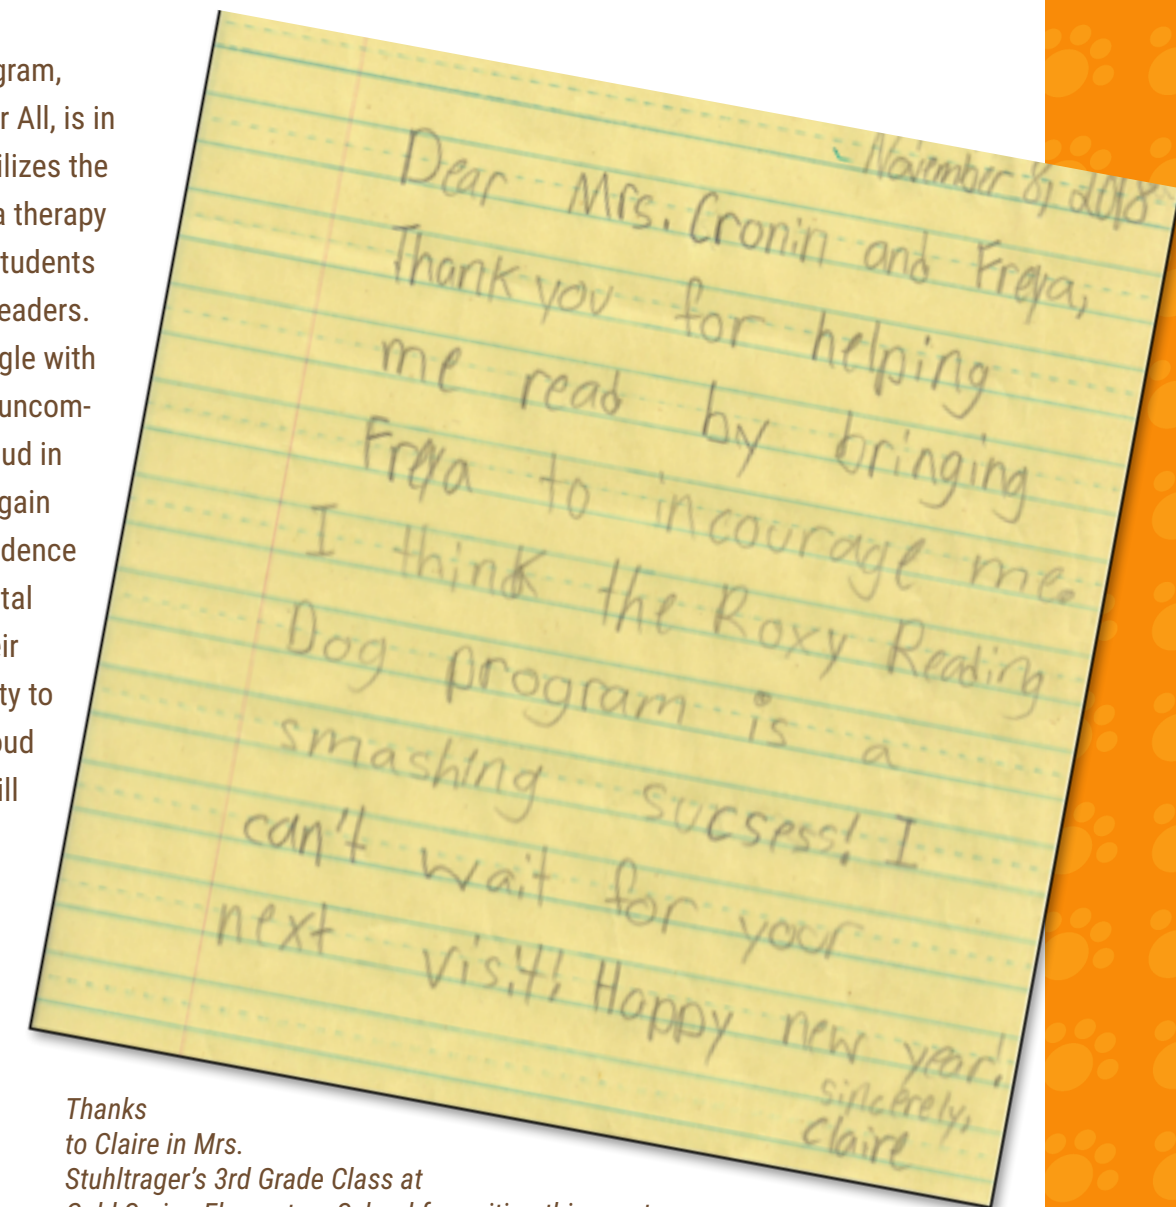 gram,
r All, is in
ilizes the
a therapy
tudents
eaders.
gle with
uncom-
ud in
gain
dence
tal
ir
ty to
oud
ill
November 8, 2018
Dear Mrs. Cronin and Freya,
Thank you for helping
me read by bringing
Freya to incourage me.
I think the Roxy Reading
Dog program is a
smashing sucsess! I
can't wait for your
next visit! Happy new year!
sincerely,
Claire
Thanks
to Claire in Mrs.
Stuhltrager's 3rd Grade Class at